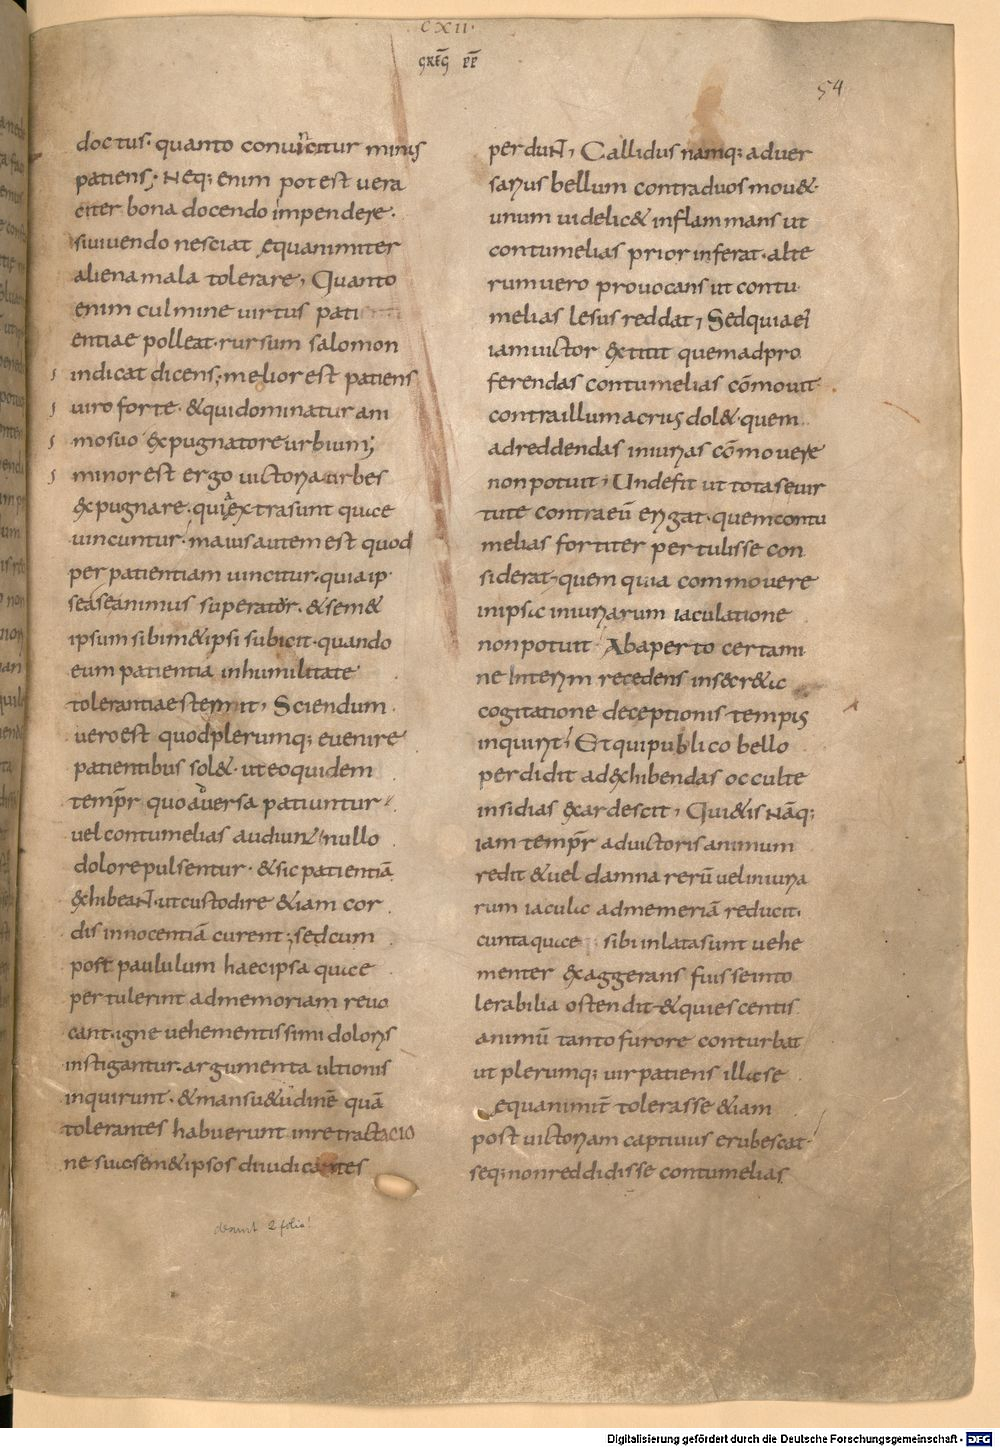 CXII·
GREḠ PP̄
54
doctus· quanto conuincitur minus
patiens; Neq; enim potest uera
citer bona docendo impendere·
siuiuendo nesciat ęquanimiter
aliena mala tolerare, Quanto
enim culmine uirtus pati
entiae polleat· rursum salomon
indicat dicens; melior est patiens
uiro forte· &qui dominatur ani
mo suo expugnatore urbium;
minor est ergo uictoria urbes
expugnare· quia extra sunt quae
uincuntur· maius autem est quod
per patientiam uincitur· quia ip
se a se animus superatur· & sem&
ipsum sibim&ipsi subicit· quando
eum patientia in humilitate
tolerantiae sternit, Sciendum
uero est quod plerumq; euenire
patientibus sol&· ut eo quidem
tempr̄ quo aduersa patiuntur
uel contumelias audiunt nullo
dolore pulsentur· & sic patientiā
exhibeant· ut custodire &iam cor
dis innocentiā curent; sed cum
post paululum haec ipsa quae
pertulerint ad memoriam reuo
cant· igne uehementissimi doloris
instigantur· argumenta ultionis
inquirunt· & mansu&udinē quā
tolerantes habuerunt in retractacio
ne suae sem&ipsos diiudicantes
desunt 2 folia!
perdunt, Callidus namq; aduer
sarius bellum contra duos mou&·
unum uidelic& inflammans ut
contumelias prior inferat· alte
rum uero prouocans ut contu
melias lesus reddat, Sed quia ei
iam uictor extitit quem ad pro
ferendas contumelias cōmouit·
contra illum acrius dol& quem
ad reddendas iniurias cōmouere
non potuit, Unde fit ut tota se uir
tute contra eū erigat· quem contu
melias fortiter pertulisse con
siderat· quem quia commouere
in ipsa iniuriarum iaculatione
non potuit Ab aperto certami
ne Interim recedens in secr&a
cogitatione deceptionis tempus
inquirit, Et qui publico bello
perdidit ad exhibendas occulte
insidias exardescit, Qui&is Nāq;
iam tempr̄ ad uictoris animum
redit & uel damna rerū uel iniuria
rum iacula ad memoriā reducit·
cunta quae sibi inlata sunt uehe
menter exaggerans fuisse into
lerabilia ostendit· & quiescentis
animū tanto furore conturbat
ut plerumq; uir patiens illa se
ęquanimit̄ tolerasse &iam
post uictoriam captiuus erubescat
seq; non reddidisse contumelias
Digitalisierung gefördert durch die Deutsche Forschungsgemeinschaft - DFG